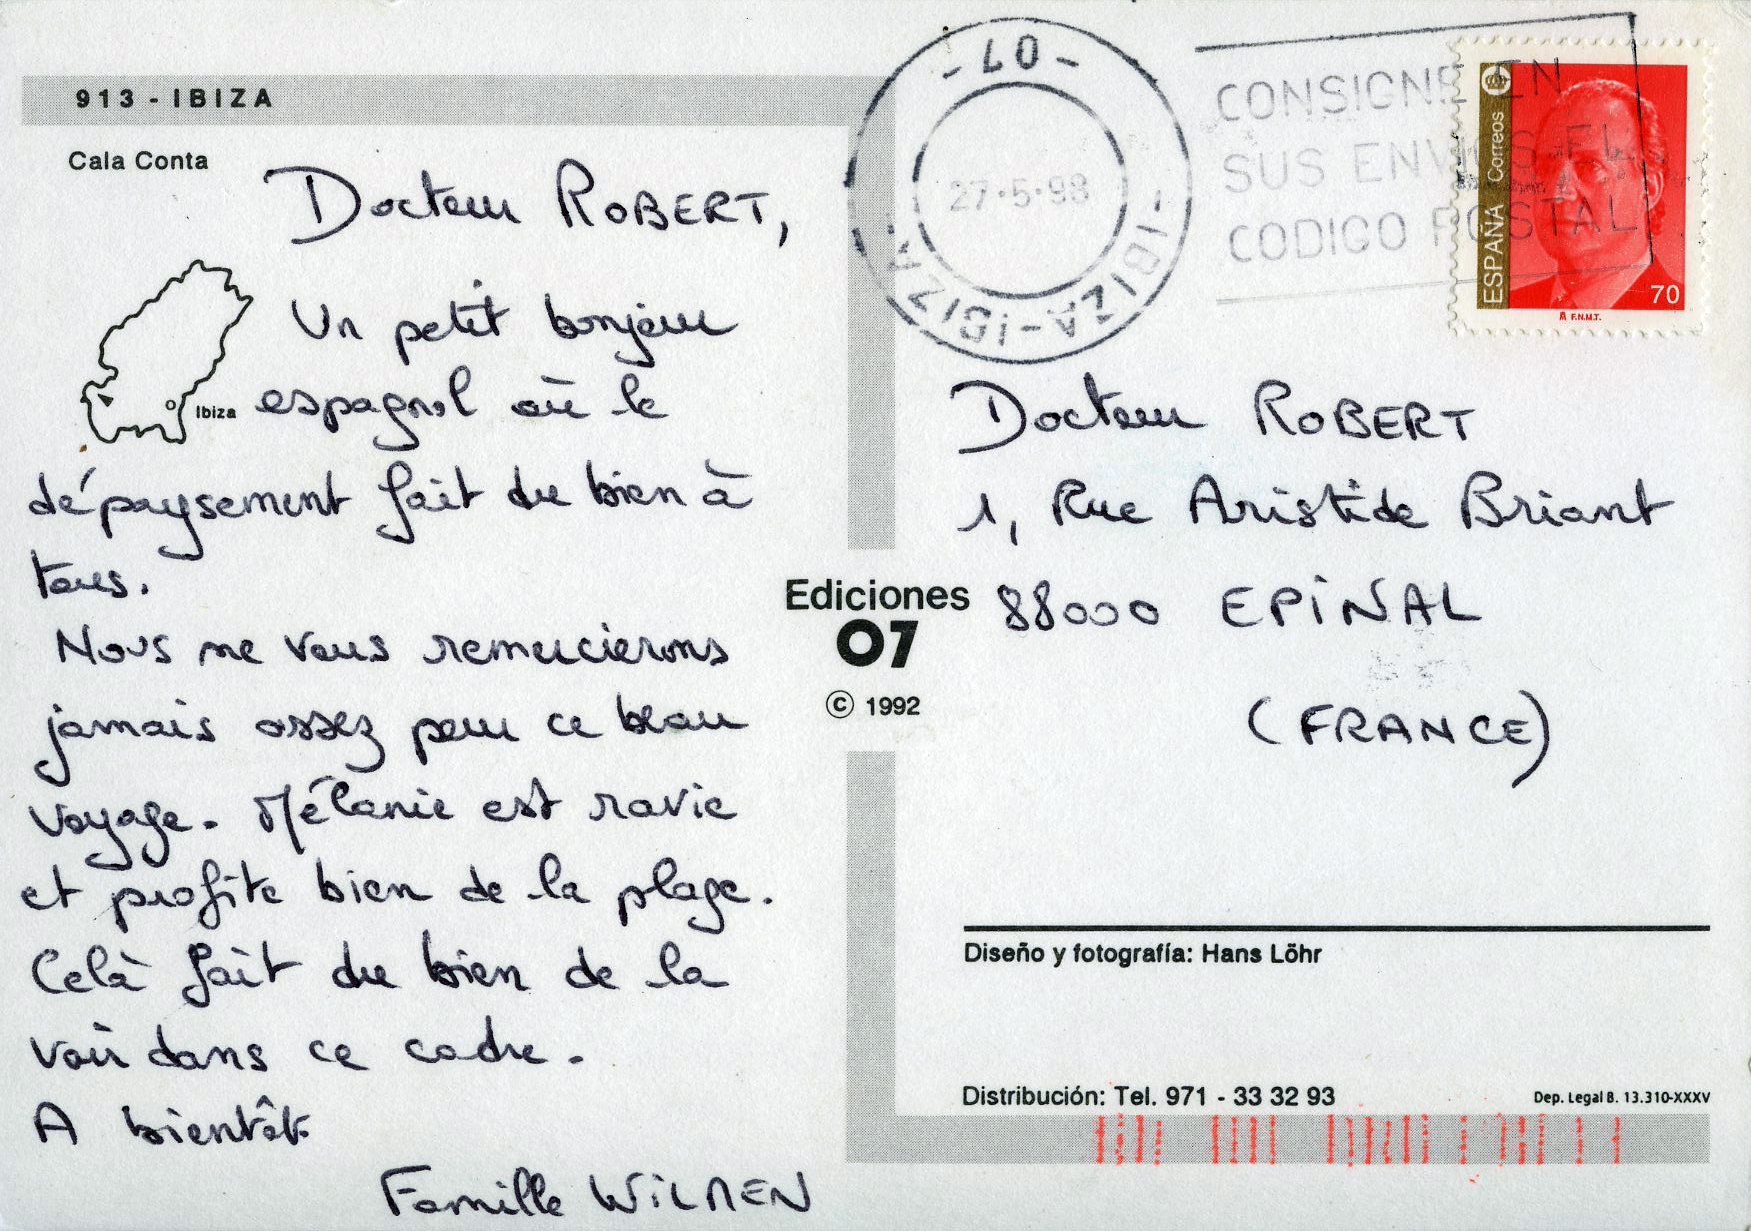 913 - IBIZA
Cala Conta
Docteur ROBERT,
Un petit bonjour
espagnol où le
dépaysement fait du bien à
tous.
Nous ne vous remercierons
jamais assez pour ce beau
voyage. Mélanie est ravie
et profite bien de la plage.
Celà fait du bien de la
voir dans ce cadre.
A bientôt
Famille WILMEN
Ibiza
Ediciones
07
© 1992
- 07 -
27·5·98
- IBIZA - IBIZA -
CONSIGNE EN
SUS ENVIOS EL
CODIGO POSTAL
ESPAÑA Correos
70
F.N.M.T.
Docteur ROBERT
1, Rue Aristide Briant
88000 EPINAL
(FRANCE)
Diseño y fotografía: Hans Löhr
Distribución: Tel. 971 - 33 32 93
Dep. Legal B. 13.310-XXXV